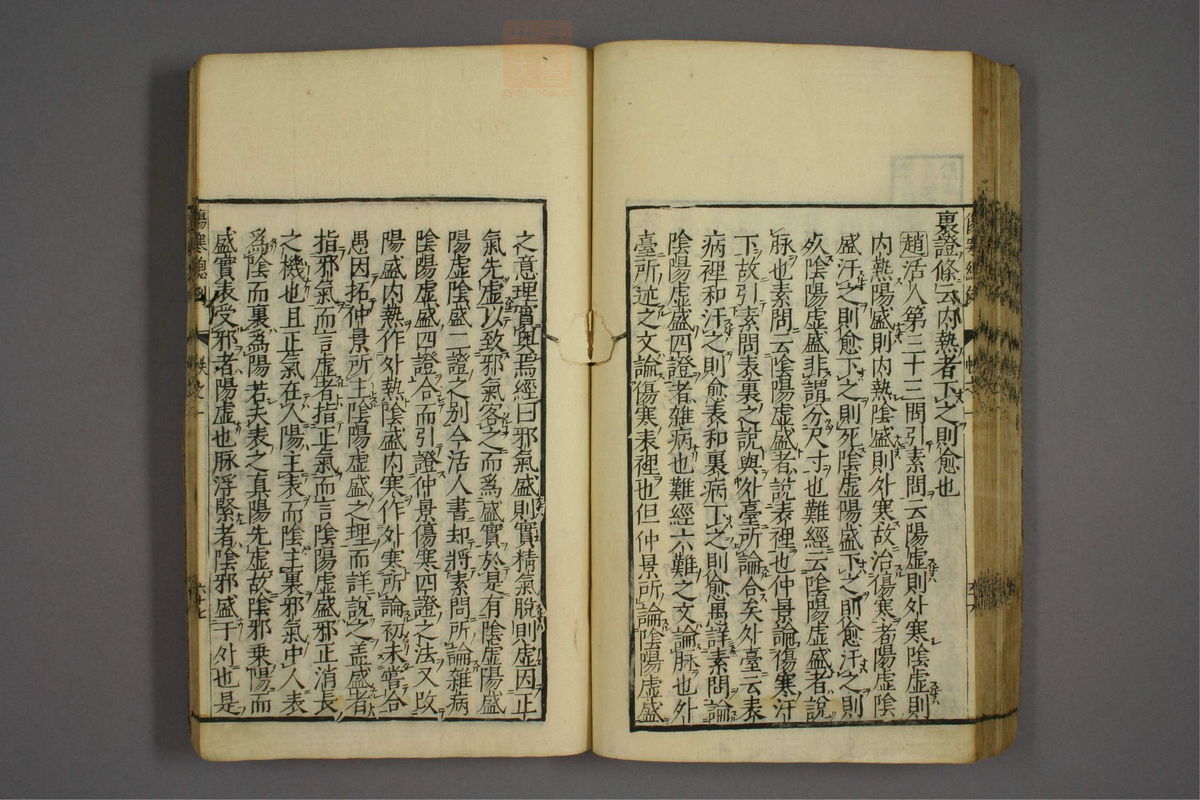 裏證條云内熱者下之則愈也
趙活人第三十三問引素問云陽虛則外寒陰虛則
内熱陽盛則内熱陰盛則外寒故治傷寒者陽虛陰
盛汗之則愈下之則死陰虛陽盛下之則愈汗之則
死陰陽虛盛非謂分尺寸也難經云陰陽虛盛者說
脉也素問云陰陽虛盛者說表裡也仲景論傷寒汗
下故引素問表裏之說與外臺所論合矣外臺云表
病裡和汗之則愈表和裏病下之則愈愚詳素問論
陰陽虛盛四證者雜病也難經六難之文論脉也外
臺所述之文論傷寒表裡也但仲景所論陰陽虛盛
之意理實奧焉經曰邪氣盛則實精氣脫則虛因正
氣先虛以致邪氣客之而爲盛實於是有陰虛陽盛
陽虛陰盛二證之别今活人書却將素問所論雜病
陰陽虛盛四證合而引證仲景傷寒四證之法又改
陽盛内熱作外熱陰盛内寒作外寒所論初未嘗合
愚因拓仲景所主陰陽虛盛之理而詳說之盖盛者
指邪氣而言虛者指正氣而言陰陽虛盛邪正消長
之機也且正氣在人陽主表而陰主裏邪氣中人表
爲陰而裏爲陽若夫表之真陽先虛故陰邪乗陽而
盛實表受邪者陽虛也脉浮緊者陰邪盛于外也是
傷寒總
六十七